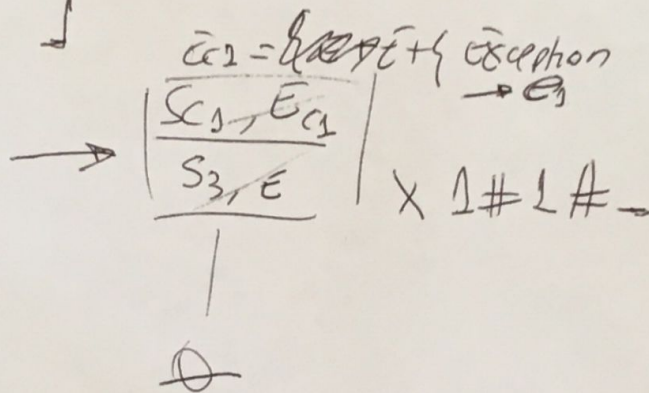 E_{c1} = E + { Exception
→ e_1
→ | S_{c1}, E_{c1} |
S_3, E
X 1 # 1 # _